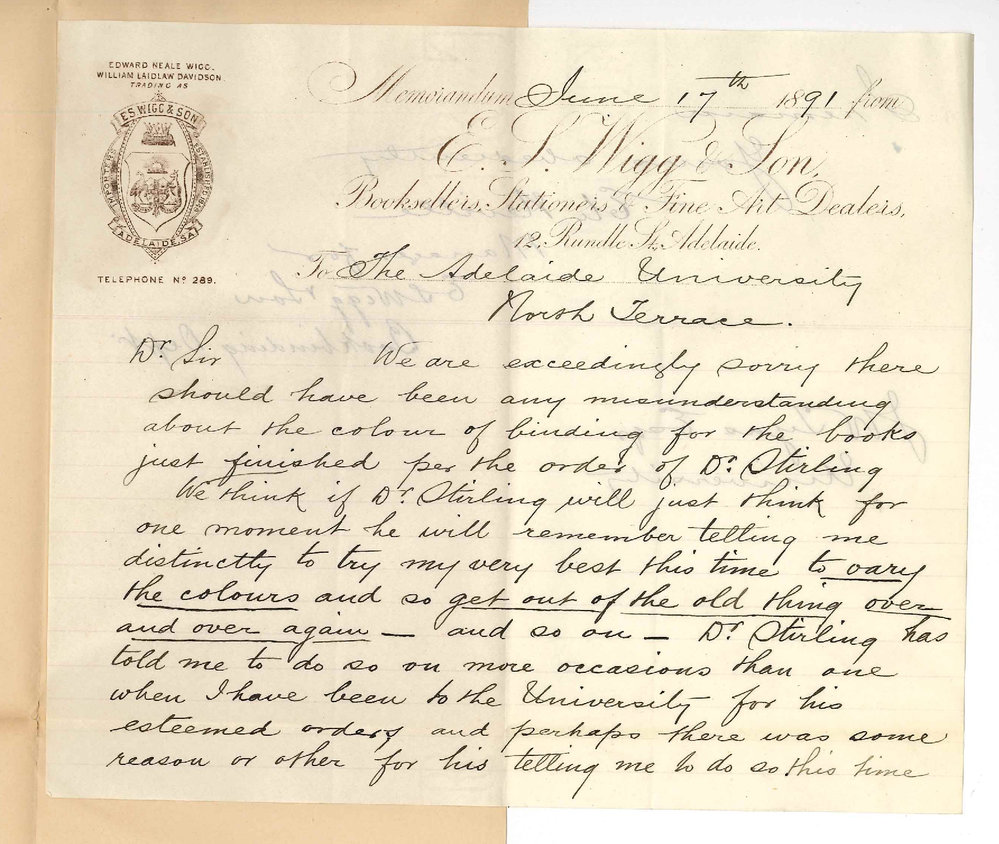 EDWARD NEALE WIGG.
WILLIAM LAIDLAW DAVIDSON.
TRADING AS
E.S. WIGG & SON
IMPORTERS
ESTABLISHED
ADELAIDE, S.A.
TELEPHONE Nº 289.
Memorandum June 17th 1891 from
E. S. Wigg & Son,
Booksellers, Stationers & Fine Art Dealers,
12, Rundle St, Adelaide.
To The Adelaide University
North Terrace.
Dr Sir We are exceedingly sorry there
should have been any misunderstanding
about the colour of binding for the books
just finished per the order of Dr. Stirling
We think if Dr. Stirling will just think for
one moment he will remember telling me
distinctly to try my very best this time to vary
the colours and so get out of the old thing over
and over again — and so on — Dr. Stirling has
told me to do so on more occasions than one
when I have been to the University for his
esteemed orders and perhaps there was some
reason or other for his telling me to do so this time